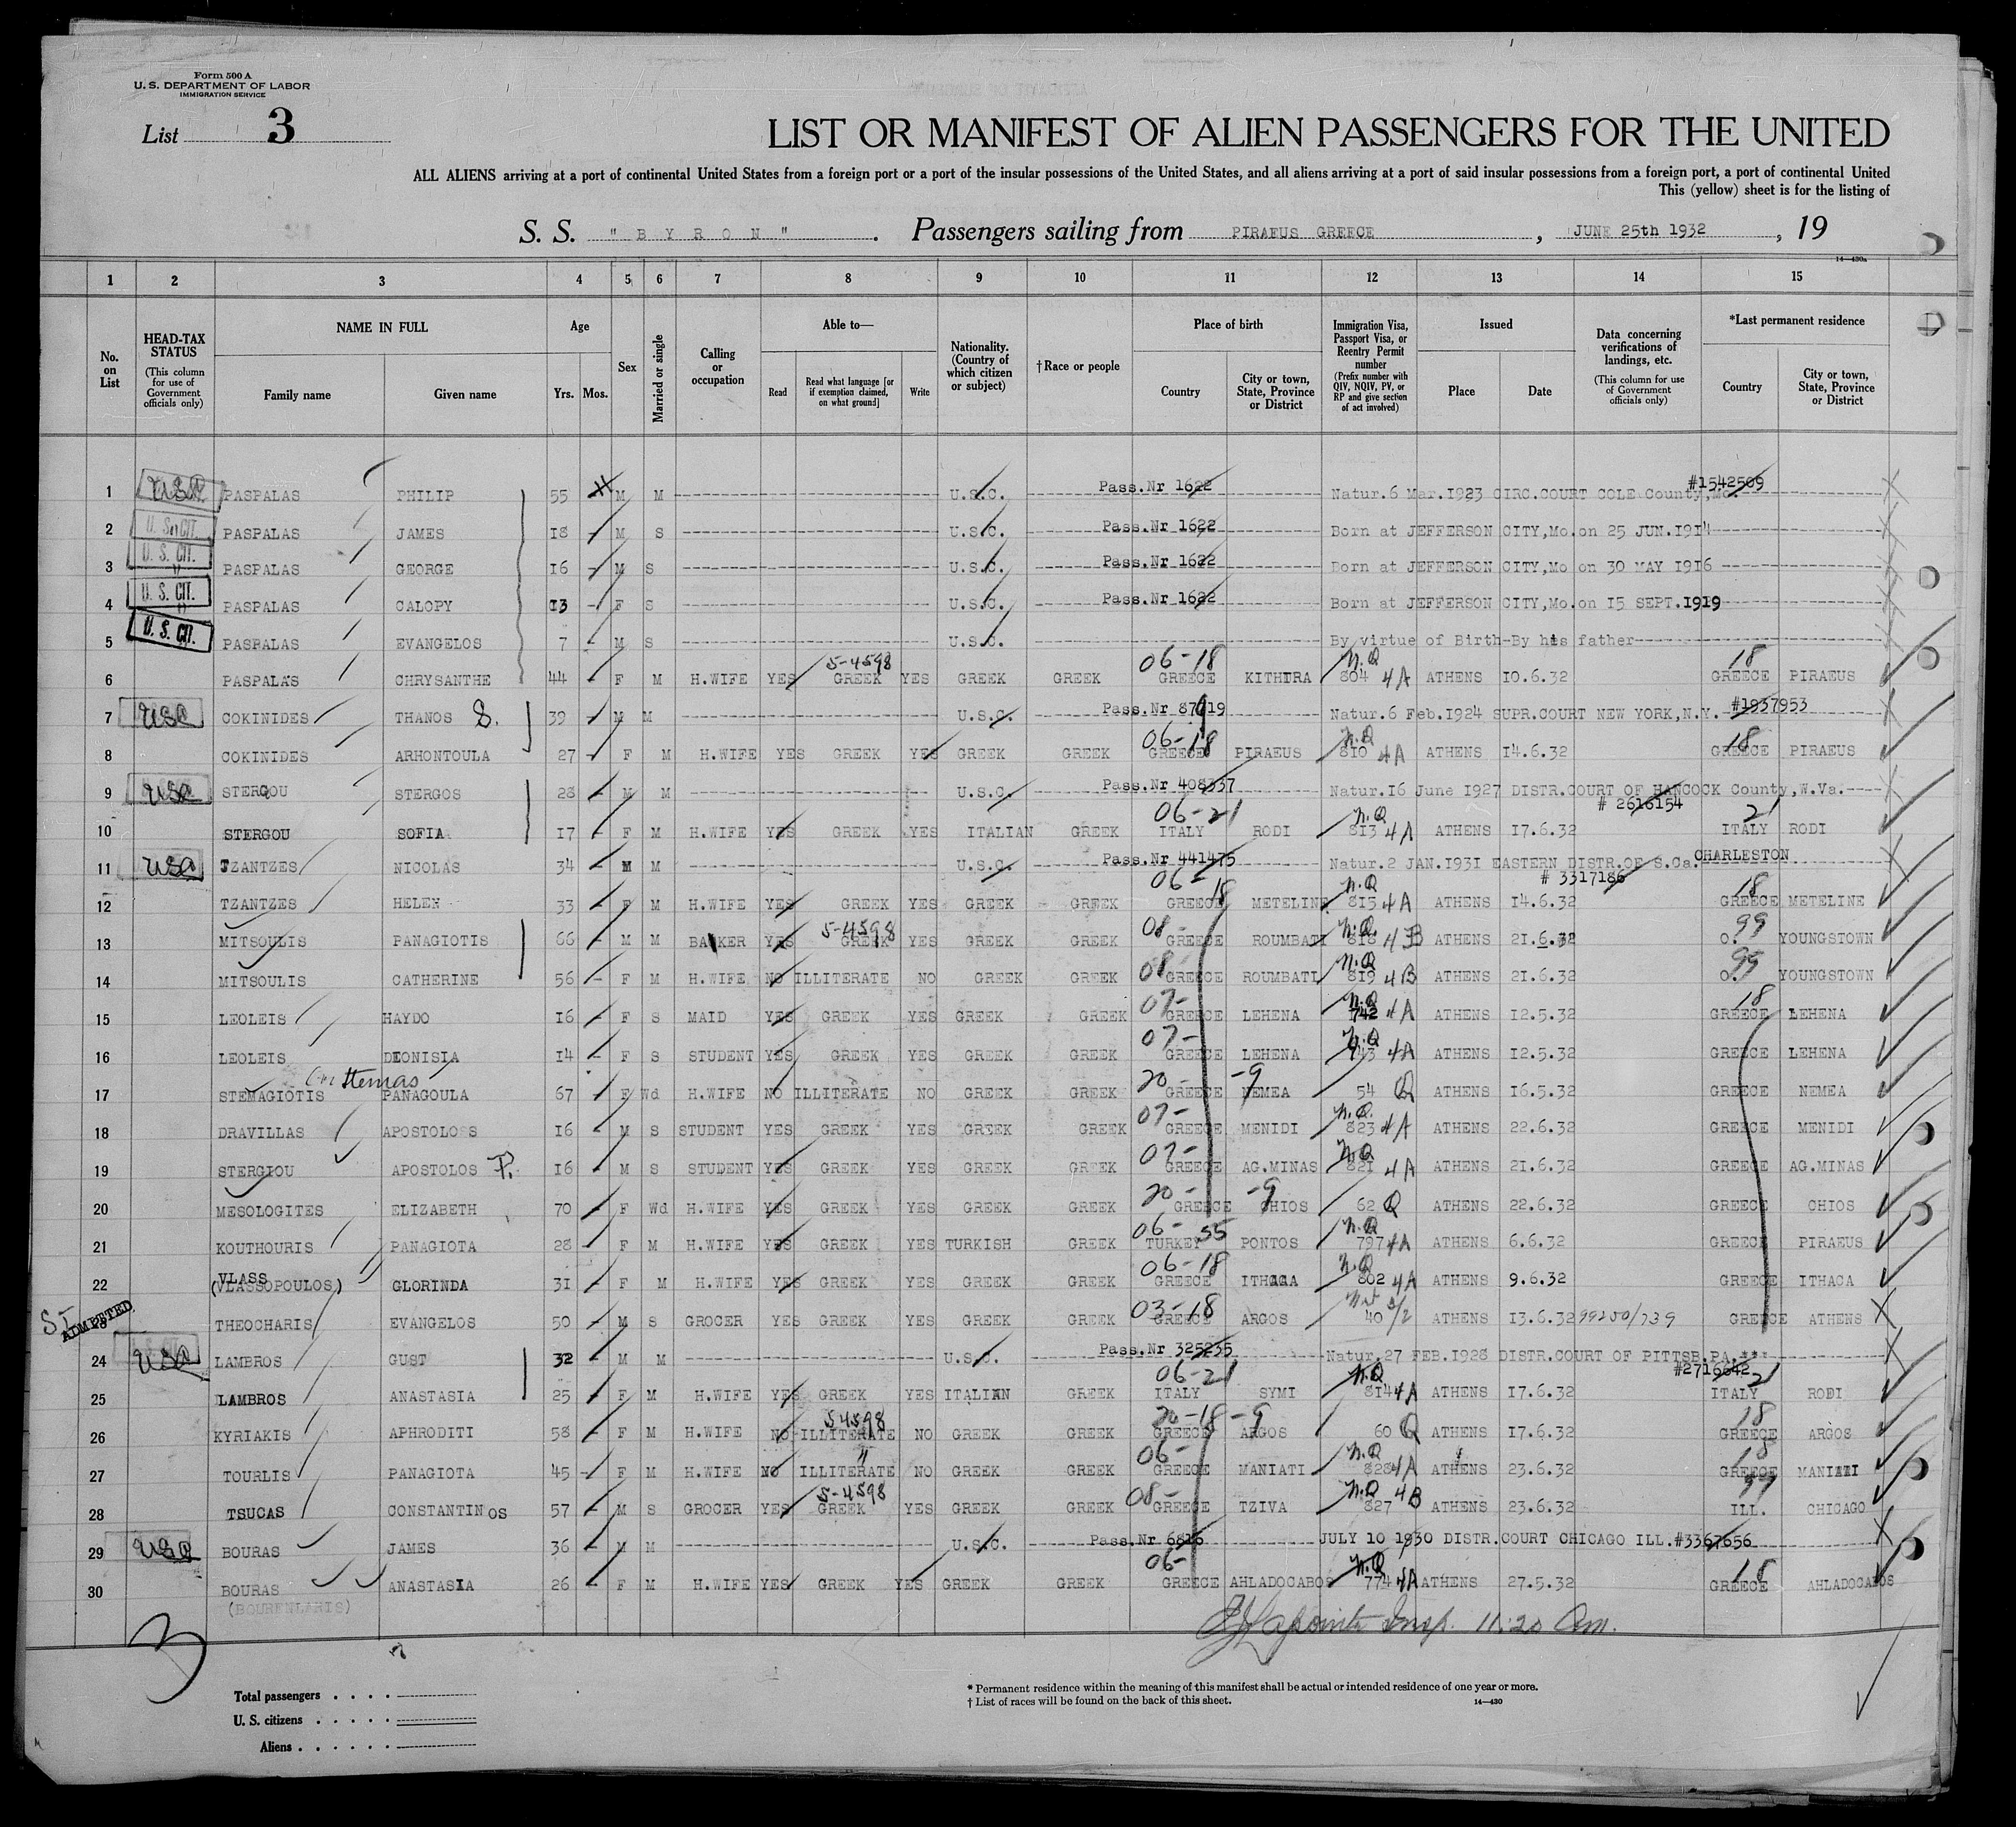 Form 500 A
U. S. DEPARTMENT OF LABOR
IMMIGRATION SERVICE
List 3
LIST OR MANIFEST OF ALIEN PASSENGERS FOR THE UNITED
ALL ALIENS arriving at a port of continental United States from a foreign port or a port of the insular possessions of the United States, and all aliens arriving at a port of said insular possessions from a foreign port, a port of continental United
This (yellow) sheet is for the listing of
S. S. "BYRON" . Passengers sailing from PIRAEUS GREECE , JUNE 25th 1932 , 19
14—430a
1 2 3 4 5 6 7 8 9 10 11 12 13 14 15
No. on List
HEAD-TAX STATUS (This column for use of Government officials only)
NAME IN FULL Family name Given name
Age Yrs. Mos.
Sex
Married or single
Calling or occupation
Able to— Read Read what language [or if exemption claimed, on what ground] Write
Nationality. (Country of which citizen or subject)
†Race or people
Place of birth Country City or town, State, Province or District
Immigration Visa, Passport Visa, or Reentry Permit number (Prefix number with QIV, NQIV, PV, or RP and give section of act involved)
Issued Place Date
Data concerning verifications of landings, etc. (This column for use of Government officials only)
*Last permanent residence Country City or town, State, Province or District
1 USC PASPALAS PHILIP 55 M M U.S.C. Pass.Nr 1622 Natur.6 Mar.1923 CIRC.COURT COLE County,Mo #1542509
2 U. S. CIT. PASPALAS JAMES 18 - M S U.S.C. Pass.Nr 1622 Born at JEFFERSON CITY,Mo.on 25 JUN.1914
3 U. S. CIT. PASPALAS GEORGE 16 - M S U.S.C. Pass.Nr 1622 Born at JEFFERSON CITY,Mo on 30 MAY 1916
4 U. S. CIT. PASPALAS CALOPY 13 - F S U.S.C. Pass.Nr 1622 Born at JEFFERSON CITY,Mo.on 15 SEPT.1919
5 U. S. CIT. PASPALAS EVANGELOS 7 - M S U.S.C. By virtue of Birth-By his father
6 PASPALAS CHRYSANTHE 44 - F M H.WIFE YES 5-4598 GREEK YES GREEK GREEK 06-18 GREECE KITHIRA N.Q 804 4A ATHENS 10.6.32 18 GREECE PIRAEUS
7 USC COKINIDES THANOS S. 39 - M M U.S.C. Pass.Nr 87919 Natur.6 Feb.1924 SUPR.COURT NEW YORK,N.Y. #1937953
8 COKINIDES ARHONTOULA 27 - F M H.WIFE YES GREEK YES GREEK GREEK 06-18 GREECE PIRAEUS N.Q 810 4A ATHENS 14.6.32 18 GREECE PIRAEUS
9 USC STERGOU STERGOS 28 - M M U.S.C. Pass.Nr 408337 Natur.16 June 1927 DISTR.COURT OF HANCOCK County,W.Va. # 2616154
10 STERGOU SOFIA 17 - F M H.WIFE YES GREEK YES ITALIAN GREEK 06-21 ITALY RODI N.Q 813 4A ATHENS 17.6.32 21 ITALY RODI
11 USC TZANTZES NICOLAS 34 - M M U.S.C. Pass.Nr 441475 Natur.2 JAN.1931 EASTERN DISTR.OF S.Ca. CHARLESTON # 3317186
12 TZANTZES HELEN 33 - F M H.WIFE YES GREEK YES GREEK GREEK 06-18 GREECE METELINE N.Q 815 4A ATHENS 14.6.32 18 GREECE METELINE
13 MITSOULIS PANAGIOTIS 66 - M M BAKER YES 5-4598 GREEK YES GREEK GREEK 08- GREECE ROUMBATI N.Q. 818 4B ATHENS 21.6.32 99 O. YOUNGSTOWN
14 MITSOULIS CATHERINE 56 - F M H.WIFE NO ILLITERATE NO GREEK GREEK 08- GREECE ROUMBATI N.Q 819 4B ATHENS 21.6.32 99 O. YOUNGSTOWN
15 LEOLEIS HAYDO 16 - F S MAID YES GREEK YES GREEK GREEK 07- GREECE LEHENA N.Q 742 4A ATHENS 12.5.32 18 GREECE LEHENA
16 LEOLEIS DIONISIA 14 - F S STUDENT YES GREEK YES GREEK GREEK 07- GREECE LEHENA N.Q 743 4A ATHENS 12.5.32 GREECE LEHENA
17 STEMAGIOTIS PANAGOULA 67 - F Wd H.WIFE NO ILLITERATE NO GREEK GREEK 20- -9 GREECE NEMEA 54 Q ATHENS 16.5.32 GREECE NEMEA
18 DRAVILLAS APOSTOLOS 16 - M S STUDENT YES GREEK YES GREEK GREEK 07- GREECE MENIDI N.Q. 823 4A ATHENS 22.6.32 GREECE MENIDI
19 STERGIOU APOSTOLOS P. 16 - M S STUDENT YES GREEK YES GREEK GREEK 07- GREECE AG.MINAS N.Q 821 4A ATHENS 21.6.32 GREECE AG.MINAS
20 MESOLOGITES ELIZABETH 70 - F Wd H.WIFE YES GREEK YES GREEK GREEK 20- -9 GREECE CHIOS 62 Q ATHENS 22.6.32 GREECE CHIOS
21 KOUTHOURIS PANAGIOTA 28 - F M H.WIFE YES GREEK YES TURKISH GREEK 06-55 TURKEY PONTOS N.Q 797 4A ATHENS 6.6.32 GREECE PIRAEUS
22 VLASS (VLASSOPOULOS) GLORINDA 31 - F M H.WIFE YES GREEK YES GREEK GREEK 06-18 GREECE ITHACA N.Q 802 4A ATHENS 9.6.32 GREECE ITHACA
SI ADMITTED 23 THEOCHARIS EVANGELOS 50 - M S GROCER YES GREEK YES GREEK GREEK 03-18 GREECE ARGOS 40 ATHENS 13.6.32 99250/739 GREECE ATHENS
24 USC LAMBROS GUST 32 - M M U.S.C. Pass.Nr 325235 Natur.27 FEB.1928 DISTR.COURT OF PITTSB.PA.*** #2716642
25 LAMBROS ANASTASIA 25 - F M H.WIFE YES GREEK YES ITALIAN GREEK 06-21 ITALY SYMI N.Q 814 4A ATHENS 17.6.32 21 ITALY RODI
26 KYRIAKIS APHRODITI 58 - F M H.WIFE NO 54598 ILLITERATE NO GREEK GREEK 20-18-9 GREECE ARGOS 60 Q ATHENS 17.6.32 18 GREECE ARGOS
27 TOURLIS PANAGIOTA 45 - F M H.WIFE NO " ILLITERATE NO GREEK GREEK 06- GREECE MANIATI N.Q 828 4A ATHENS 23.6.32 18 GREECE MANIATI
28 TSUCAS CONSTANTINOS 57 - M S GROCER YES 5-4598 GREEK YES GREEK GREEK 08- GREECE TZIVA N.Q 4B 827 ATHENS 23.6.32 99 ILL. CHICAGO
29 USC BOURAS JAMES 36 - M M U.S.C. Pass.Nr 6816 JULY 10 1930 DISTR.COURT CHICAGO ILL.#3367656
30 BOURAS ANASTASIA 26 - F M H.WIFE YES GREEK YES GREEK GREEK 06- GREECE AHLADOCABOS N.Q 774 4A ATHENS 27.5.32 18 GREECE AHLADOCABOS
(BOURENLARIS)
Lapointe Insp. 11:20 Am.
3
Total passengers
U. S. citizens
Aliens
* Permanent residence within the meaning of this manifest shall be actual or intended residence of one year or more.
† List of races will be found on the back of this sheet. 14—430